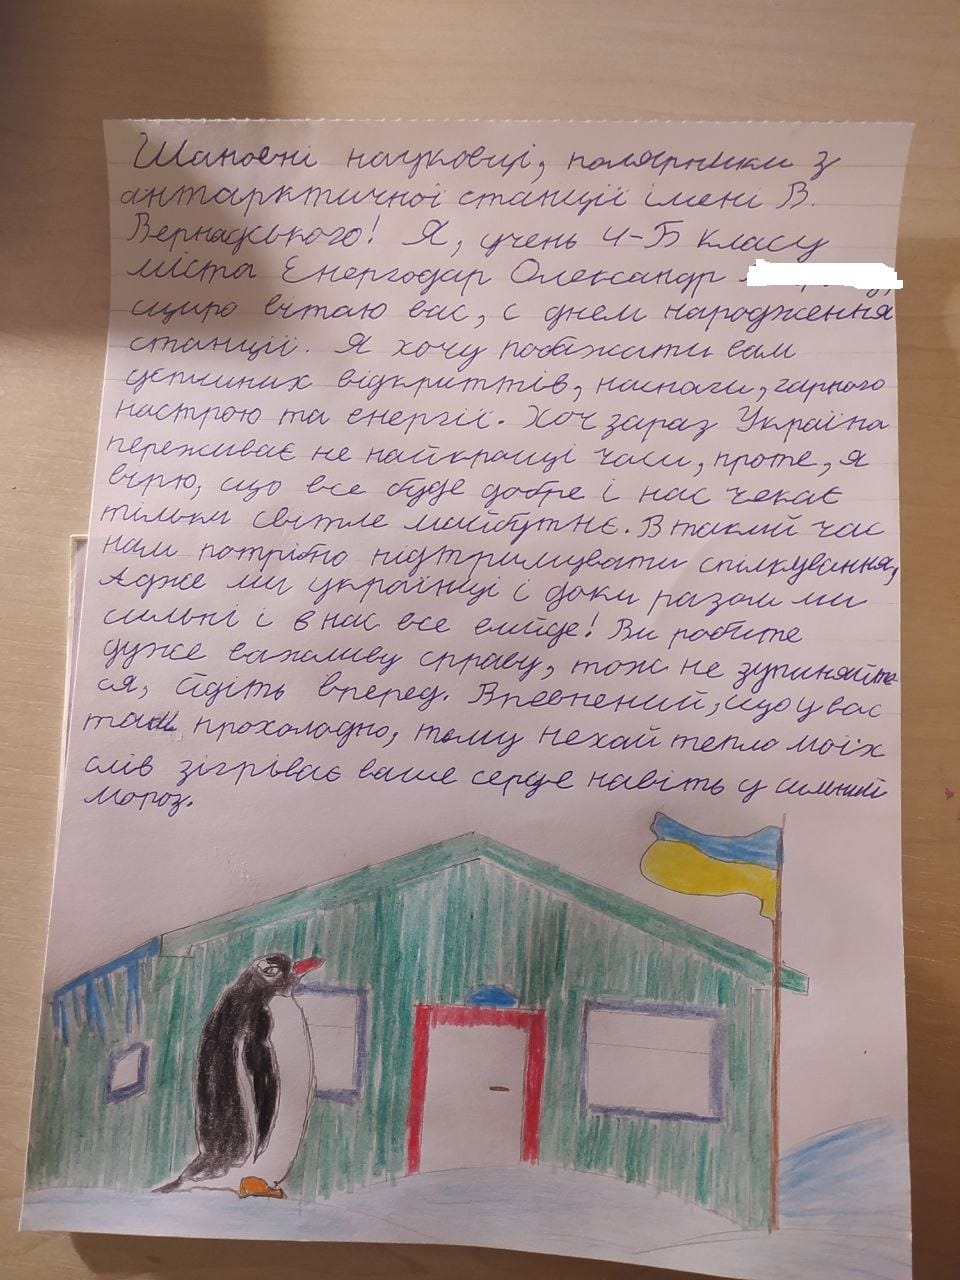 Шановні науковці, полярники з
антарктичної станції імені В.
Вернадського! Я, учень 4-Б класу
міста Енергодар Олександр
щиро вітаю вас, с днем народження
станції. Я хочу побажати вам
успішних відкриттів, наснаги, гарного
настрою та енергії. Хоч зараз Україна
переживає не найкращі часи, проте, я
вірю, що все буде добре і нас чекає
тільки світле майбутнє. В такий час
нам потрібно підтримувати спілкування,
Адже ми українці і доки разом ми
сильні і в нас все вийде! Ви робите
дуже важливу справу, тож не зупиняйте
ся, йдіть вперед. Впевнений, що у вас
там прохолодно, тому нехай тепло моїх
слів зігріває ваше серце навіть у сильний
мороз.